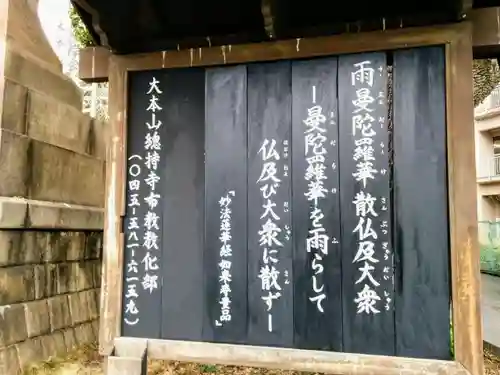 雨曼陀羅華 散仏及大衆
ー曼陀羅華を雨らして
仏及び大衆に散ずー
『妙法蓮華経如来寿量品』
大本山總持寺布教教化部
(〇四五-五八一-六一五九)